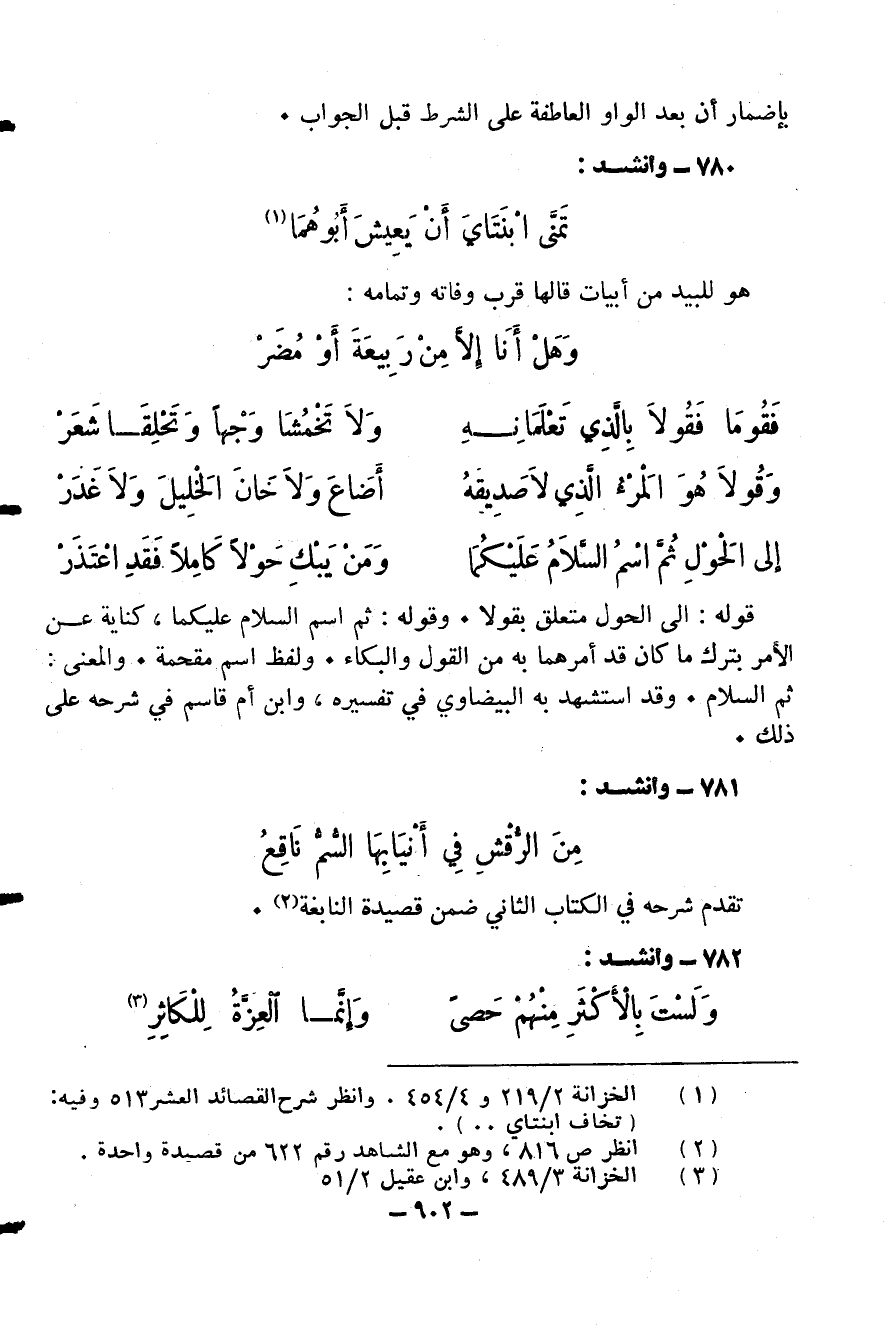 بإضمار أن بعد الواو العاطفة على الشرط قبل الجواب ٠
٧٨٠ ــ وأنشـد :
تَمَنَّى ابْنَتَايَ أَنْ يَعِيشَ أَبُوهُمَا(١)
هو للبيد من أبيات قالها قرب وفاته وتمامه :
وَهَلْ أَنَا إِلاَّ مِنْ رَبِيعَةَ أَوْ مُضَرْ
فَقُومَا فَقُولاَ بِالَّذِي تَعْلَمَانِـــهِ وَلاَ تَخْمُشَا وَجْهاً وَتَحْلِقَـــا شَعَرْ
وَقُولاَ هُوَ الْمَرْءُ الَّذِي لاَ صَدِيقَهُ أَضَاعَ وَلاَ خَانَ الْخَلِيلَ وَلاَ غَدَرْ
إلى الْحَوْلِ ثُمَّ اسْمُ السَّلاَمُ عَلَيْكُمَا وَمَنْ يَبْكِ حَوْلاً كَامِلاً فَقَدِ اعْتَذَرْ
قوله : الى الحول متعلق بقولا ٠ وقوله : ثم اسم السلام عليكما ، كناية عــن
الأمر بترك ما كان قد أمرهما به من القول والبكاء ٠ ولفظ اسم مقحمة ٠ والمعنى :
ثم السلام ٠ وقد استشهد به البيضاوي في تفسيره ، وابن أم قاسم في شرحه على
ذلك ٠
٧٨١ ــ وأنشـد :
مِنَ الرُّقْشِ فِي أَنْيَابِهَا السُّمُّ نَاقِعُ
تقدم شرحه في الكتاب الثاني ضمن قصيدة النابغة(٢) ٠
٧٨٢ ــ وأنشـد :
وَلَسْتَ بِالْأَكْثَرِ مِنْهُمْ حَصىً وَإِنَّمـــا الْعِزَّةُ لِلْكَاثِرِ(٣)
(١) الخزانة ٢١٩/٢ و ٤٥٤/٤ . وانظر شرح القصائد العشر ٥١٣ وفيه:
( تخاف ابنتاي . . ) .
(٢) انظر ص ٨١٦ ، وهو مع الشاهد رقم ٦٢٢ من قصيدة واحدة .
(٣) الخزانة ٤٨٩/٣ ، وابن عقيل ٥١/٢
– ٩٠٢ –